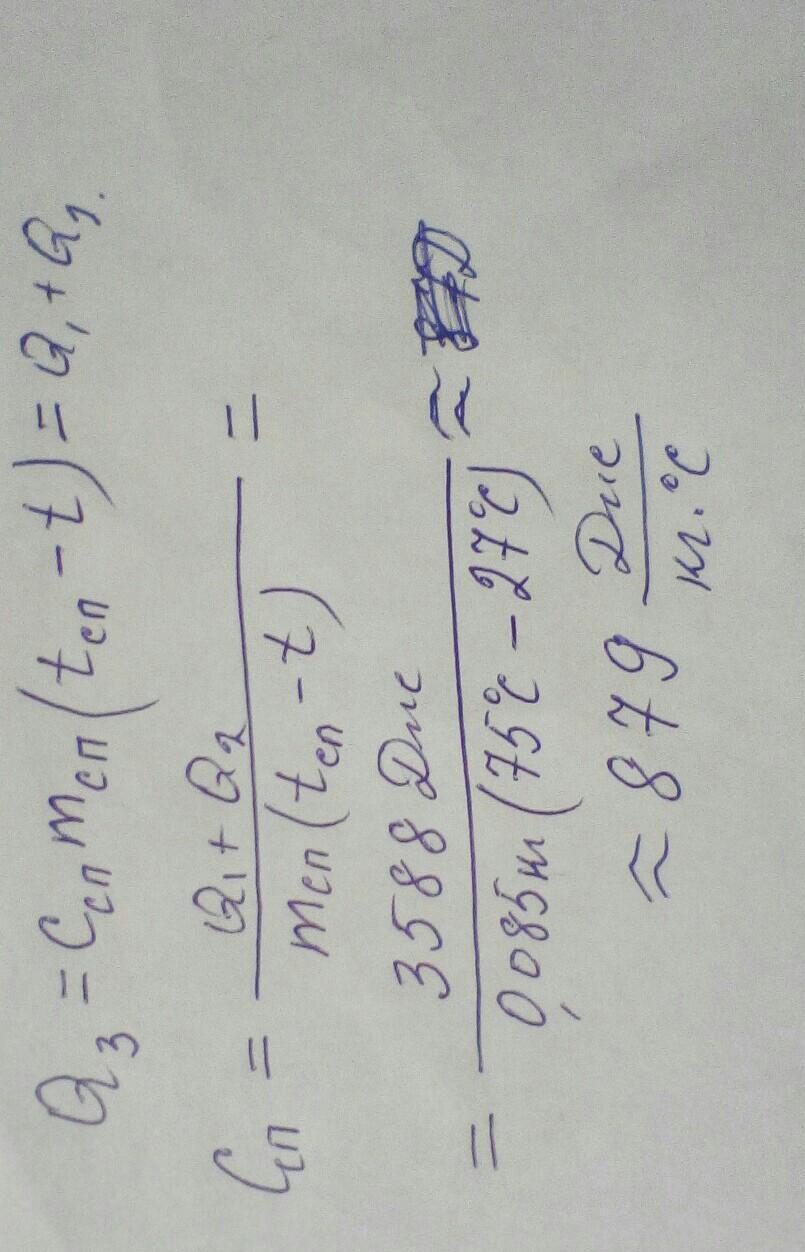 Q₃ = Cсп mсп (tсп − t) = Q₁ + Q₂.
Cсп = (Q₁ + Q₂) / (mсп (tсп − t)) =
= 3588 Дж / (0,085 кг (75°C − 27°C)) ≈
≈ 879 Дж / (кг·°C)